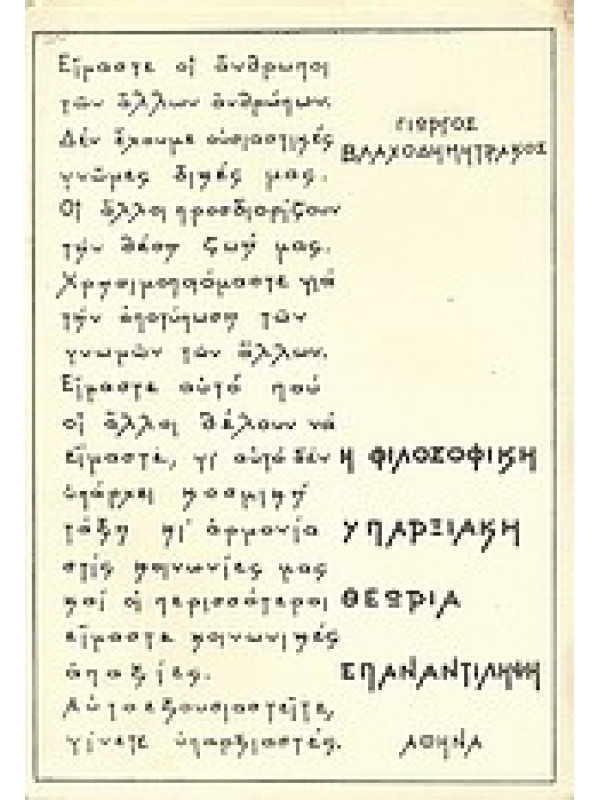 Εἴμαστε οἱ ἄνθρωποι
τῶν ἄλλων ἀνθρώπων.
Δέν ἔχουμε οὐσιαστικές
γνῶμες δικές μας.
Οἱ ἄλλοι προσδιορίζουν
τήν θέση ζωή μας.
Χρησιμοποιόμαστε γιά
τήν ἀποτύπωση τῶν
γνωμῶν τῶν ἄλλων.
Εἴμαστε αὐτό πού
οἱ ἄλλοι θέλουν νά
εἴμαστε, γι' αὐτό δέν
ὑπάρχει κοσμική
τάξη κι' ἁρμονία
στίς κοινωνίες μας
καί οἱ περισσότεροι
εἴμαστε κοινωνικές
ἀπαξίες.
Αὐτοεξουσιαστεῖτε,
γίνετε ὑπαρξιαστές.
ΓΙΩΡΓΟΣ
ΒΛΑΧΟΔΗΜΗΤΡΑΚΟΣ
Η ΦΙΛΟΣΟΦΙΚΗ
ΥΠΑΡΞΙΑΚΗ
ΘΕΩΡΙΑ
ΕΠΑΝΑΝΤΙΛΗΨΗ
ΑΘΗΝΑ